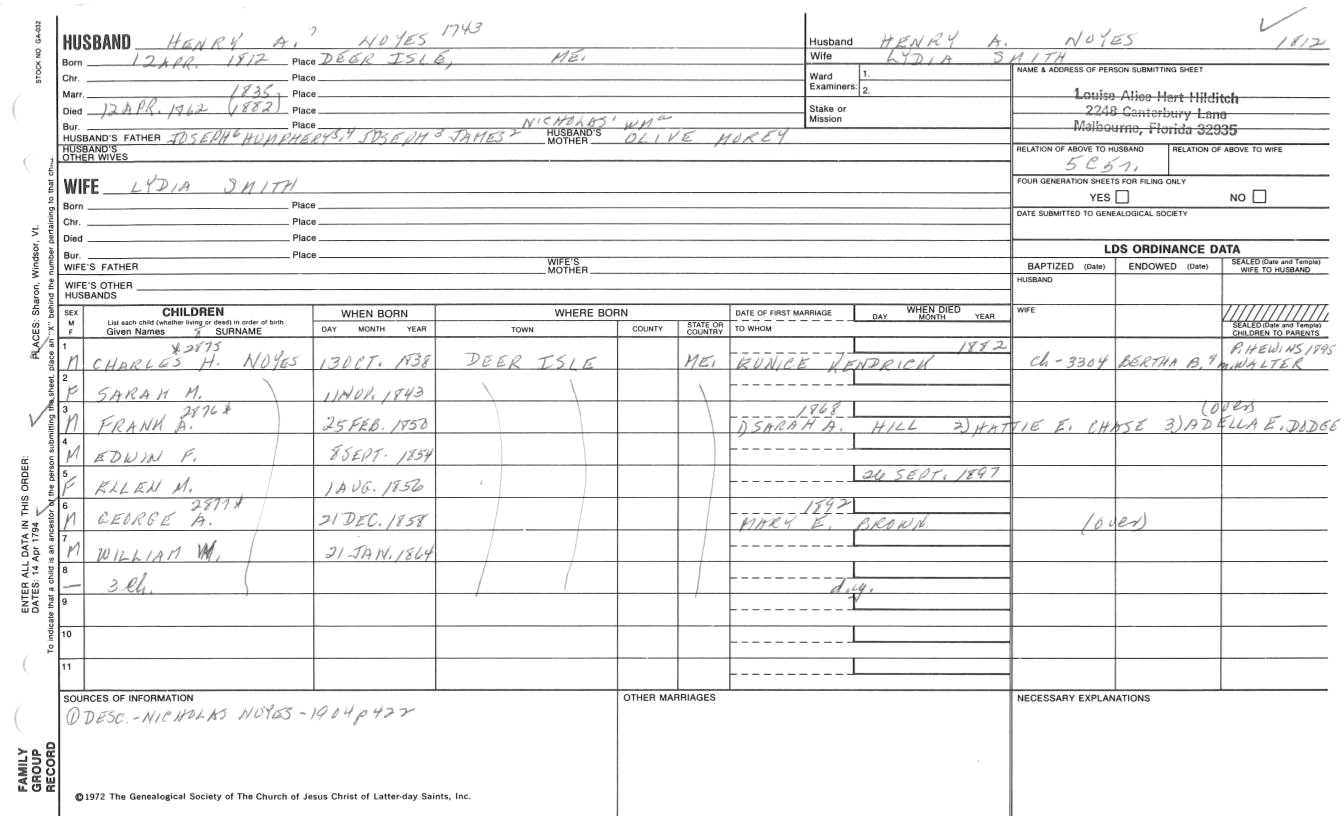 STOCK NO. GA-032
HUSBAND HENRY A. 7 NOYES 1743
Born 12 APR. 1812 Place DEER ISLE, ME.
Chr. Place
Marr. 1835 Place
Died 12 APR. 1962 (1882) Place
Bur. Place NICHOLAS' WM2
HUSBAND'S FATHER JOSEPH6 HUMPHERY5,4 JOSEPH3 JAMES2 HUSBAND'S MOTHER OLIVE MOREY
HUSBAND'S OTHER WIVES
Husband HENRY A. NOYES 1812
Wife LYDIA SMITH
Ward Examiners: 1. 2.
Stake or Mission
NAME & ADDRESS OF PERSON SUBMITTING SHEET
Louise Alice Hart Hilditch
2248 Canterbury Lane
Melbourne, Florida 32935
RELATION OF ABOVE TO HUSBAND RELATION OF ABOVE TO WIFE
5C5r.
FOUR GENERATION SHEETS FOR FILING ONLY
YES NO
DATE SUBMITTED TO GENEALOGICAL SOCIETY
WIFE LYDIA SMITH
Born Place
Chr. Place
Died Place
Bur. Place
WIFE'S FATHER WIFE'S MOTHER
WIFE'S OTHER HUSBANDS
LDS ORDINANCE DATA
BAPTIZED (Date) ENDOWED (Date) SEALED (Date and Temple) WIFE TO HUSBAND
HUSBAND
WIFE
SEALED (Date and Temple) CHILDREN TO PARENTS
SEX M F CHILDREN WHEN BORN WHERE BORN DATE OF FIRST MARRIAGE WHEN DIED
List each child (whether living or dead) in order of birth
Given Names 8 SURNAME DAY MONTH YEAR TOWN COUNTY STATE OR COUNTRY TO WHOM DAY MONTH YEAR
1 *2875 1882 P. HEWINS 1895
M CHARLES H. NOYES 13 OCT. 1838 DEER ISLE ME. EUNICE KENDRICK Ch-3304 BERTHA B.9 m. WALTER
2
F SARAH M. 11 NOV. 1843
3 2876* 1868 (over)
M FRANK A. 25 FEB. 1850 1) SARAH A. HILL 2) HATTIE E. CHASE 3) ADELLA E. DODGE
4
M EDWIN F. 8 SEPT. 1854
5 26 SEPT. 1897
F ELLEN M. 1 AUG. 1856
6 2877* 1892
M GEORGE A. 21 DEC. 1858 MARY E. BROWN (over)
7
M WILLIAM W. 21 JAN. 1864
8
— 3 ch. d.y.
9
10
11
SOURCES OF INFORMATION OTHER MARRIAGES NECESSARY EXPLANATIONS
① DESC.-NICHOLAS NOYES-1904 p 422
©1972 The Genealogical Society of The Church of Jesus Christ of Latter-day Saints, Inc.
FAMILY GROUP RECORD
ENTER ALL DATA IN THIS ORDER:
DATES: 14 Apr 1794 PLACES: Sharon, Windsor, Vt.
To indicate that a child is an ancestor of the person submitting the sheet, place an "X" behind the number pertaining to that child.